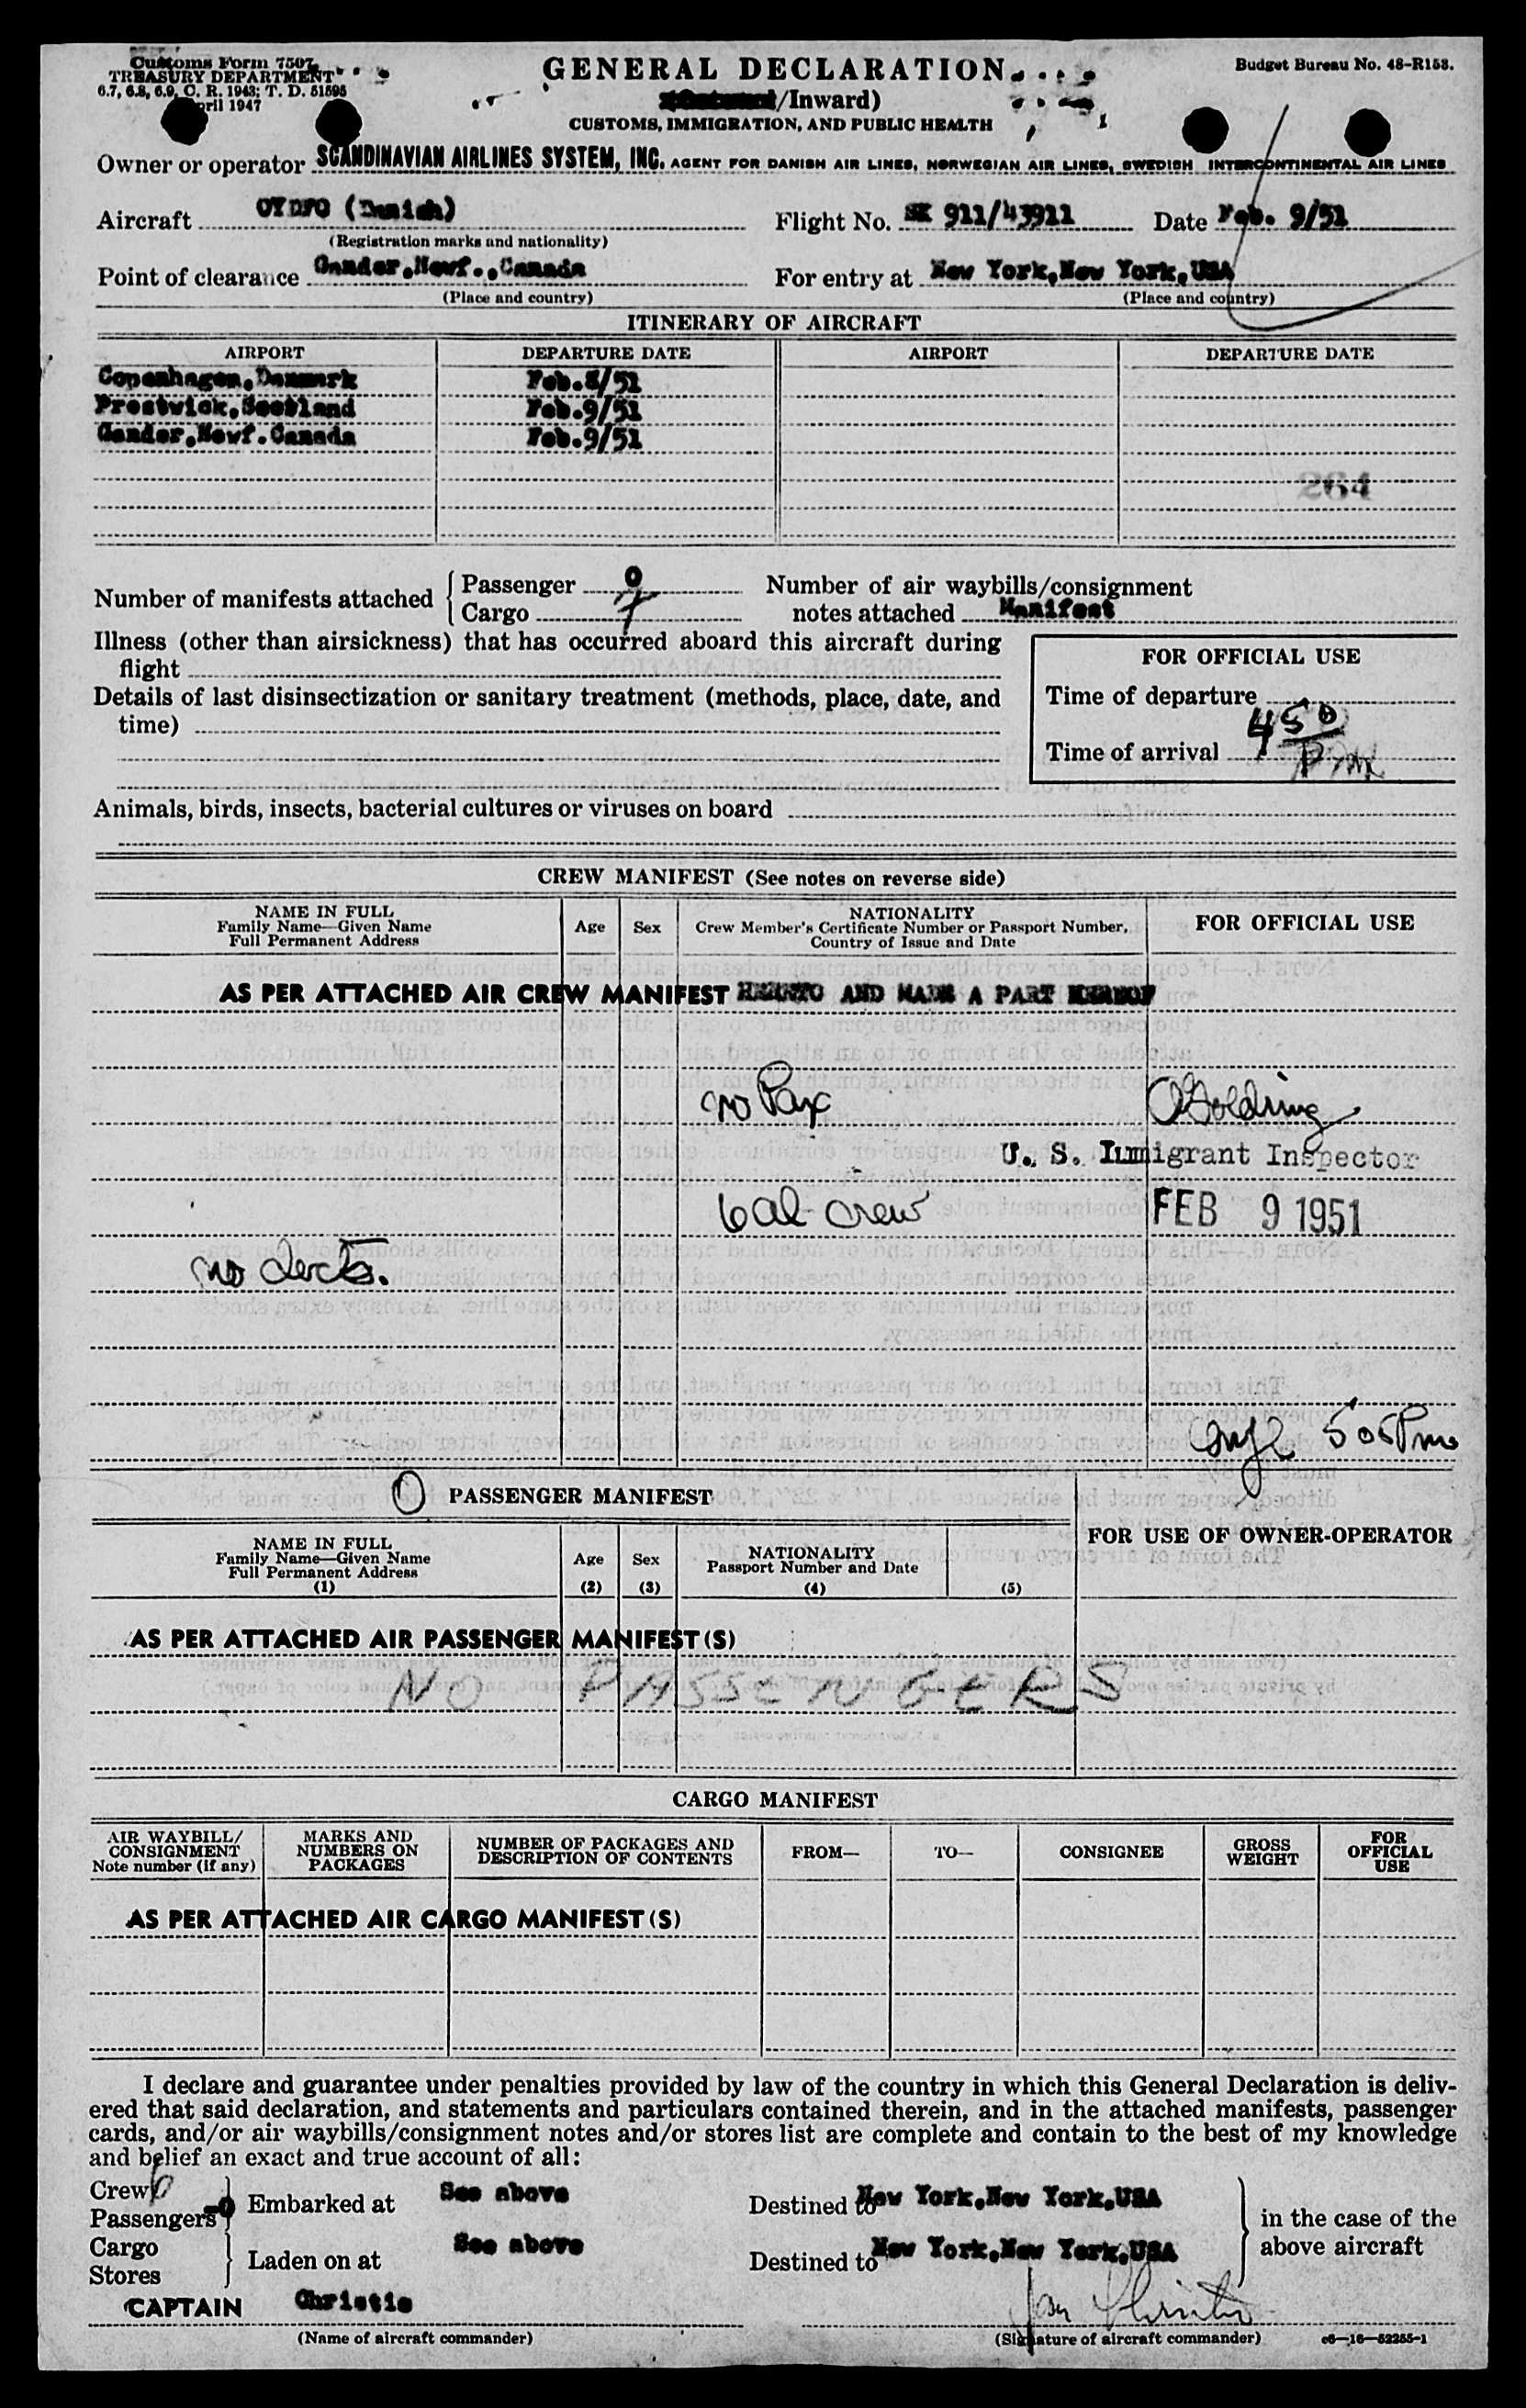 Customs Form 7507
TREASURY DEPARTMENT
6.7, 6.8, 6.9, C. R. 1943; T. D. 51595
April 1947
GENERAL DECLARATION
/Inward)
CUSTOMS, IMMIGRATION, AND PUBLIC HEALTH
Budget Bureau No. 48-R153.
Owner or operator SCANDINAVIAN AIRLINES SYSTEM, INC. AGENT FOR DANISH AIR LINES, NORWEGIAN AIR LINES, SWEDISH INTERCONTINENTAL AIR LINES
Aircraft OYDFO (Danish) Flight No. SK 911/43911 Date Feb. 9/51
(Registration marks and nationality)
Point of clearance Gander,Newf.,Canada For entry at New York,New York,USA
(Place and country) (Place and country)
ITINERARY OF AIRCRAFT
AIRPORT DEPARTURE DATE AIRPORT DEPARTURE DATE
Copenhagen,Danmark Feb.8/51
Prestwick,Scotland Feb.9/51
Gander,Newf.Canada Feb.9/51
264
Number of manifests attached Passenger 0 Number of air waybills/consignment
Cargo 7 notes attached Manifest
Illness (other than airsickness) that has occurred aboard this aircraft during
flight
Details of last disinsectization or sanitary treatment (methods, place, date, and
time)
FOR OFFICIAL USE
Time of departure
Time of arrival 4 50 PM
Animals, birds, insects, bacterial cultures or viruses on board
CREW MANIFEST (See notes on reverse side)
NAME IN FULL
Family Name—Given Name
Full Permanent Address
Age Sex
NATIONALITY
Crew Member's Certificate Number or Passport Number,
Country of Issue and Date
FOR OFFICIAL USE
AS PER ATTACHED AIR CREW MANIFEST HERETO AND MADE A PART HEREOF
no Pax Golding
U. S. Immigrant Inspector
6 al crew FEB 9 1951
no decls.
5 05 Pm
0 PASSENGER MANIFEST
FOR USE OF OWNER-OPERATOR
NAME IN FULL
Family Name—Given Name
Full Permanent Address
(1)
Age
(2)
Sex
(3)
NATIONALITY
Passport Number and Date
(4) (5)
AS PER ATTACHED AIR PASSENGER MANIFEST(S)
NO PASSENGERS
CARGO MANIFEST
AIR WAYBILL/
CONSIGNMENT
Note number (if any)
MARKS AND
NUMBERS ON
PACKAGES
NUMBER OF PACKAGES AND
DESCRIPTION OF CONTENTS
FROM— TO— CONSIGNEE
GROSS
WEIGHT
FOR
OFFICIAL
USE
AS PER ATTACHED AIR CARGO MANIFEST(S)
I declare and guarantee under penalties provided by law of the country in which this General Declaration is deliv-
ered that said declaration, and statements and particulars contained therein, and in the attached manifests, passenger
cards, and/or air waybills/consignment notes and/or stores list are complete and contain to the best of my knowledge
and belief an exact and true account of all:
Crew 6
Passengers 0 Embarked at See above Destined to New York,New York,USA in the case of the
above aircraft
Cargo
Stores Laden on at See above Destined to New York,New York,USA
CAPTAIN Christie
(Name of aircraft commander) (Signature of aircraft commander) c6—16—52255-1